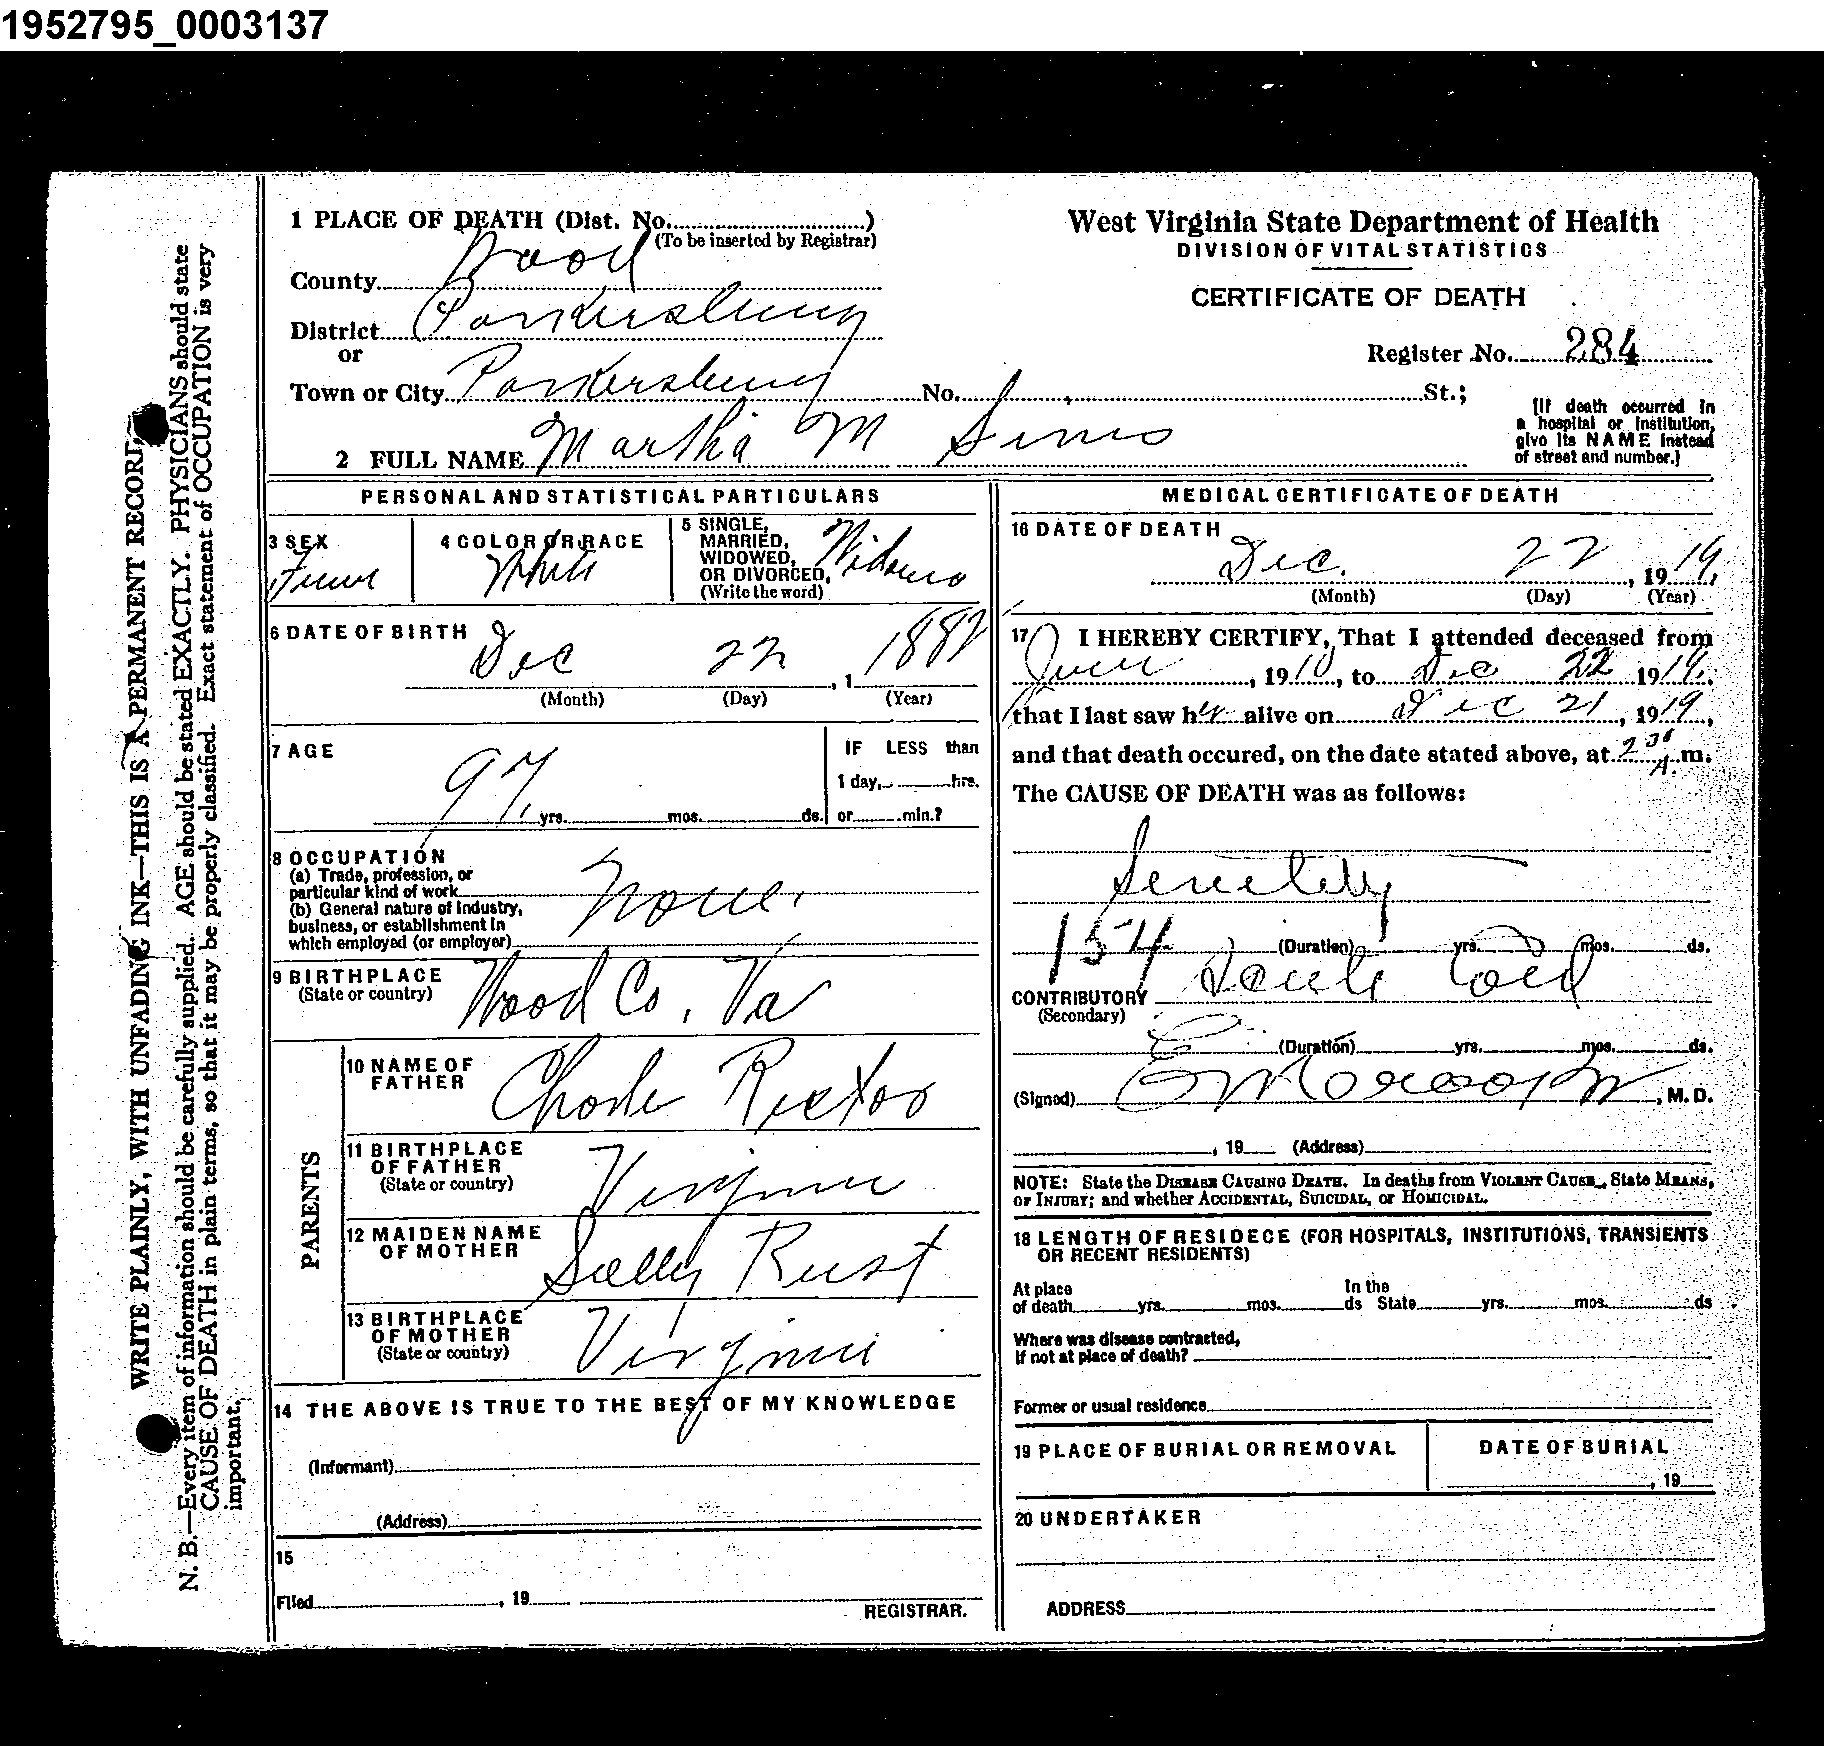 1952795_0003137
1 PLACE OF DEATH (Dist. No. )
(To be inserted by Registrar)
County Wood
District Parkersburg
or
Town or City Parkersburg No. St.;
2 FULL NAME Martha M Sims
West Virginia State Department of Health
DIVISION OF VITAL STATISTICS
CERTIFICATE OF DEATH
Register No. 284
[If death occurred in
a hospital or institution,
give its NAME instead
of street and number.]
PERSONAL AND STATISTICAL PARTICULARS
3 SEX
4 COLOR OR RACE White
5 SINGLE,
MARRIED,
WIDOWED,
OR DIVORCED,
(Write the word)
6 DATE OF BIRTH Dec 22, 1882
(Month) (Day) (Year)
7 AGE 97 yrs. mos. ds.
IF LESS than
1 day, hrs.
or min.?
8 OCCUPATION
(a) Trade, profession, or
particular kind of work
(b) General nature of industry,
business, or establishment in
which employed (or employer)
None.
9 BIRTHPLACE
(State or country) Wood Co, Va
PARENTS
10 NAME OF
FATHER Charles Rector
11 BIRTHPLACE
OF FATHER
(State or country) Virginia
12 MAIDEN NAME
OF MOTHER Sally Rust
13 BIRTHPLACE
OF MOTHER
(State or country) Virginia
14 THE ABOVE IS TRUE TO THE BEST OF MY KNOWLEDGE
(Informant)
(Address)
15
Filed , 19
REGISTRAR.
MEDICAL CERTIFICATE OF DEATH
16 DATE OF DEATH
Dec. 22, 1919.
(Month) (Day) (Year)
17 I HEREBY CERTIFY, That I attended deceased from
June, 1910, to Dec 22 1919.
that I last saw her alive on Dec 21, 1919,
and that death occured, on the date stated above, at 2 30 A.m.
The CAUSE OF DEATH was as follows:
Senility
154 (Duration) yrs. mos. ds.
CONTRIBUTORY Cold
(Secondary)
(Duration) yrs. mos. ds.
(Signed) , M.D.
, 19 (Address)
NOTE: State the DISEASE CAUSING DEATH. In deaths from VIOLENT CAUSE, State MEANS,
OF INJURY; and whether ACCIDENTAL, SUICIDAL, or HOMICIDAL.
18 LENGTH OF RESIDECE (FOR HOSPITALS, INSTITUTIONS, TRANSIENTS
OR RECENT RESIDENTS)
At place In the
of death yrs. mos. ds State yrs. mos. ds
Where was disease contracted,
If not at place of death?
Former or usual residence
19 PLACE OF BURIAL OR REMOVAL
DATE OF BURIAL
, 19
20 UNDERTAKER
ADDRESS
WRITE PLAINLY, WITH UNFADING INK—THIS IS A PERMANENT RECORD,
N. B.—Every item of information should be carefully supplied. AGE should be stated EXACTLY. PHYSICIANS should state
CAUSE OF DEATH in plain terms, so that it may be properly classified. Exact statement of OCCUPATION is very
important.